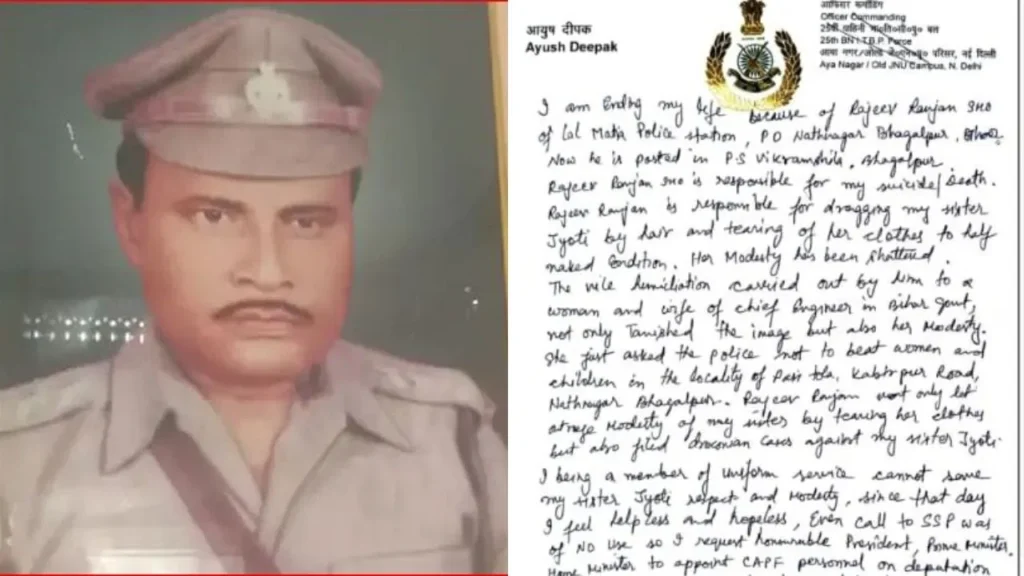 आयुष दीपक
Ayush Deepak
Officer Commanding
25th BN I.T.B.P. Force
Aya Nagar / Old JNU Campus, N. Delhi
I am Ending my life because of Rajeev Ranjan SHO
of Lal Matia Police station, P.O Nathnagar Bhagalpur,
Now he is posted in P.S Vikramshila, Bhagalpur
Rajeev Ranjan SHO is responsible for my suicide/Death.
Rajeev Ranjan is responsible for dragging my sister
Jyoti by hair and tearing of her clothes to half
naked condition. Her Modesty has been shattered.
The vile humiliation carried out by him to a
woman and wife of chief Engineer in Bihar Govt,
not only Tanished the image but also her Modesty.
She just asked the police not to beat women and
children in the locality of Pasi tola, Kabirpur Road,
Nathnagar Bhagalpur. Rajeev Ranjan not only
Modesty of my sister by tearing her clothes
but also filed cases against my sister Jyoti.
I being a member of Uniform service cannot save
my sister Jyoti respect and Modesty, since that day
I feel helpless and hopeless, Even call to SSP was
of NO use so I request honourable President, Prime Minister,
Home Minister to appoint CAPF personnel on deputation